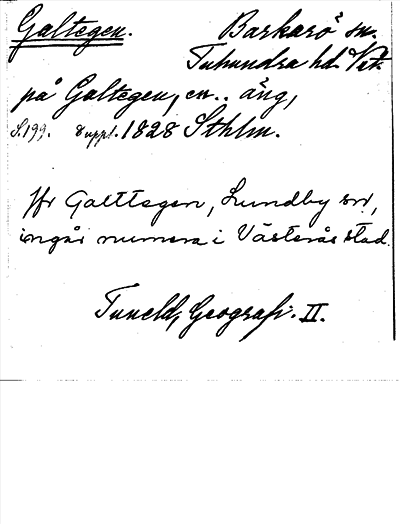 Galtegen. Barkarö sn.
Tuhundra hd. Vstm
på Galtegen, en .. äng,
S. 199. 8 uppl. 1828 Sthlm.
Jfr Galttegen, Lundby sn,
ingår numera i Västerås stad.
Tuneld, Geografi. II.